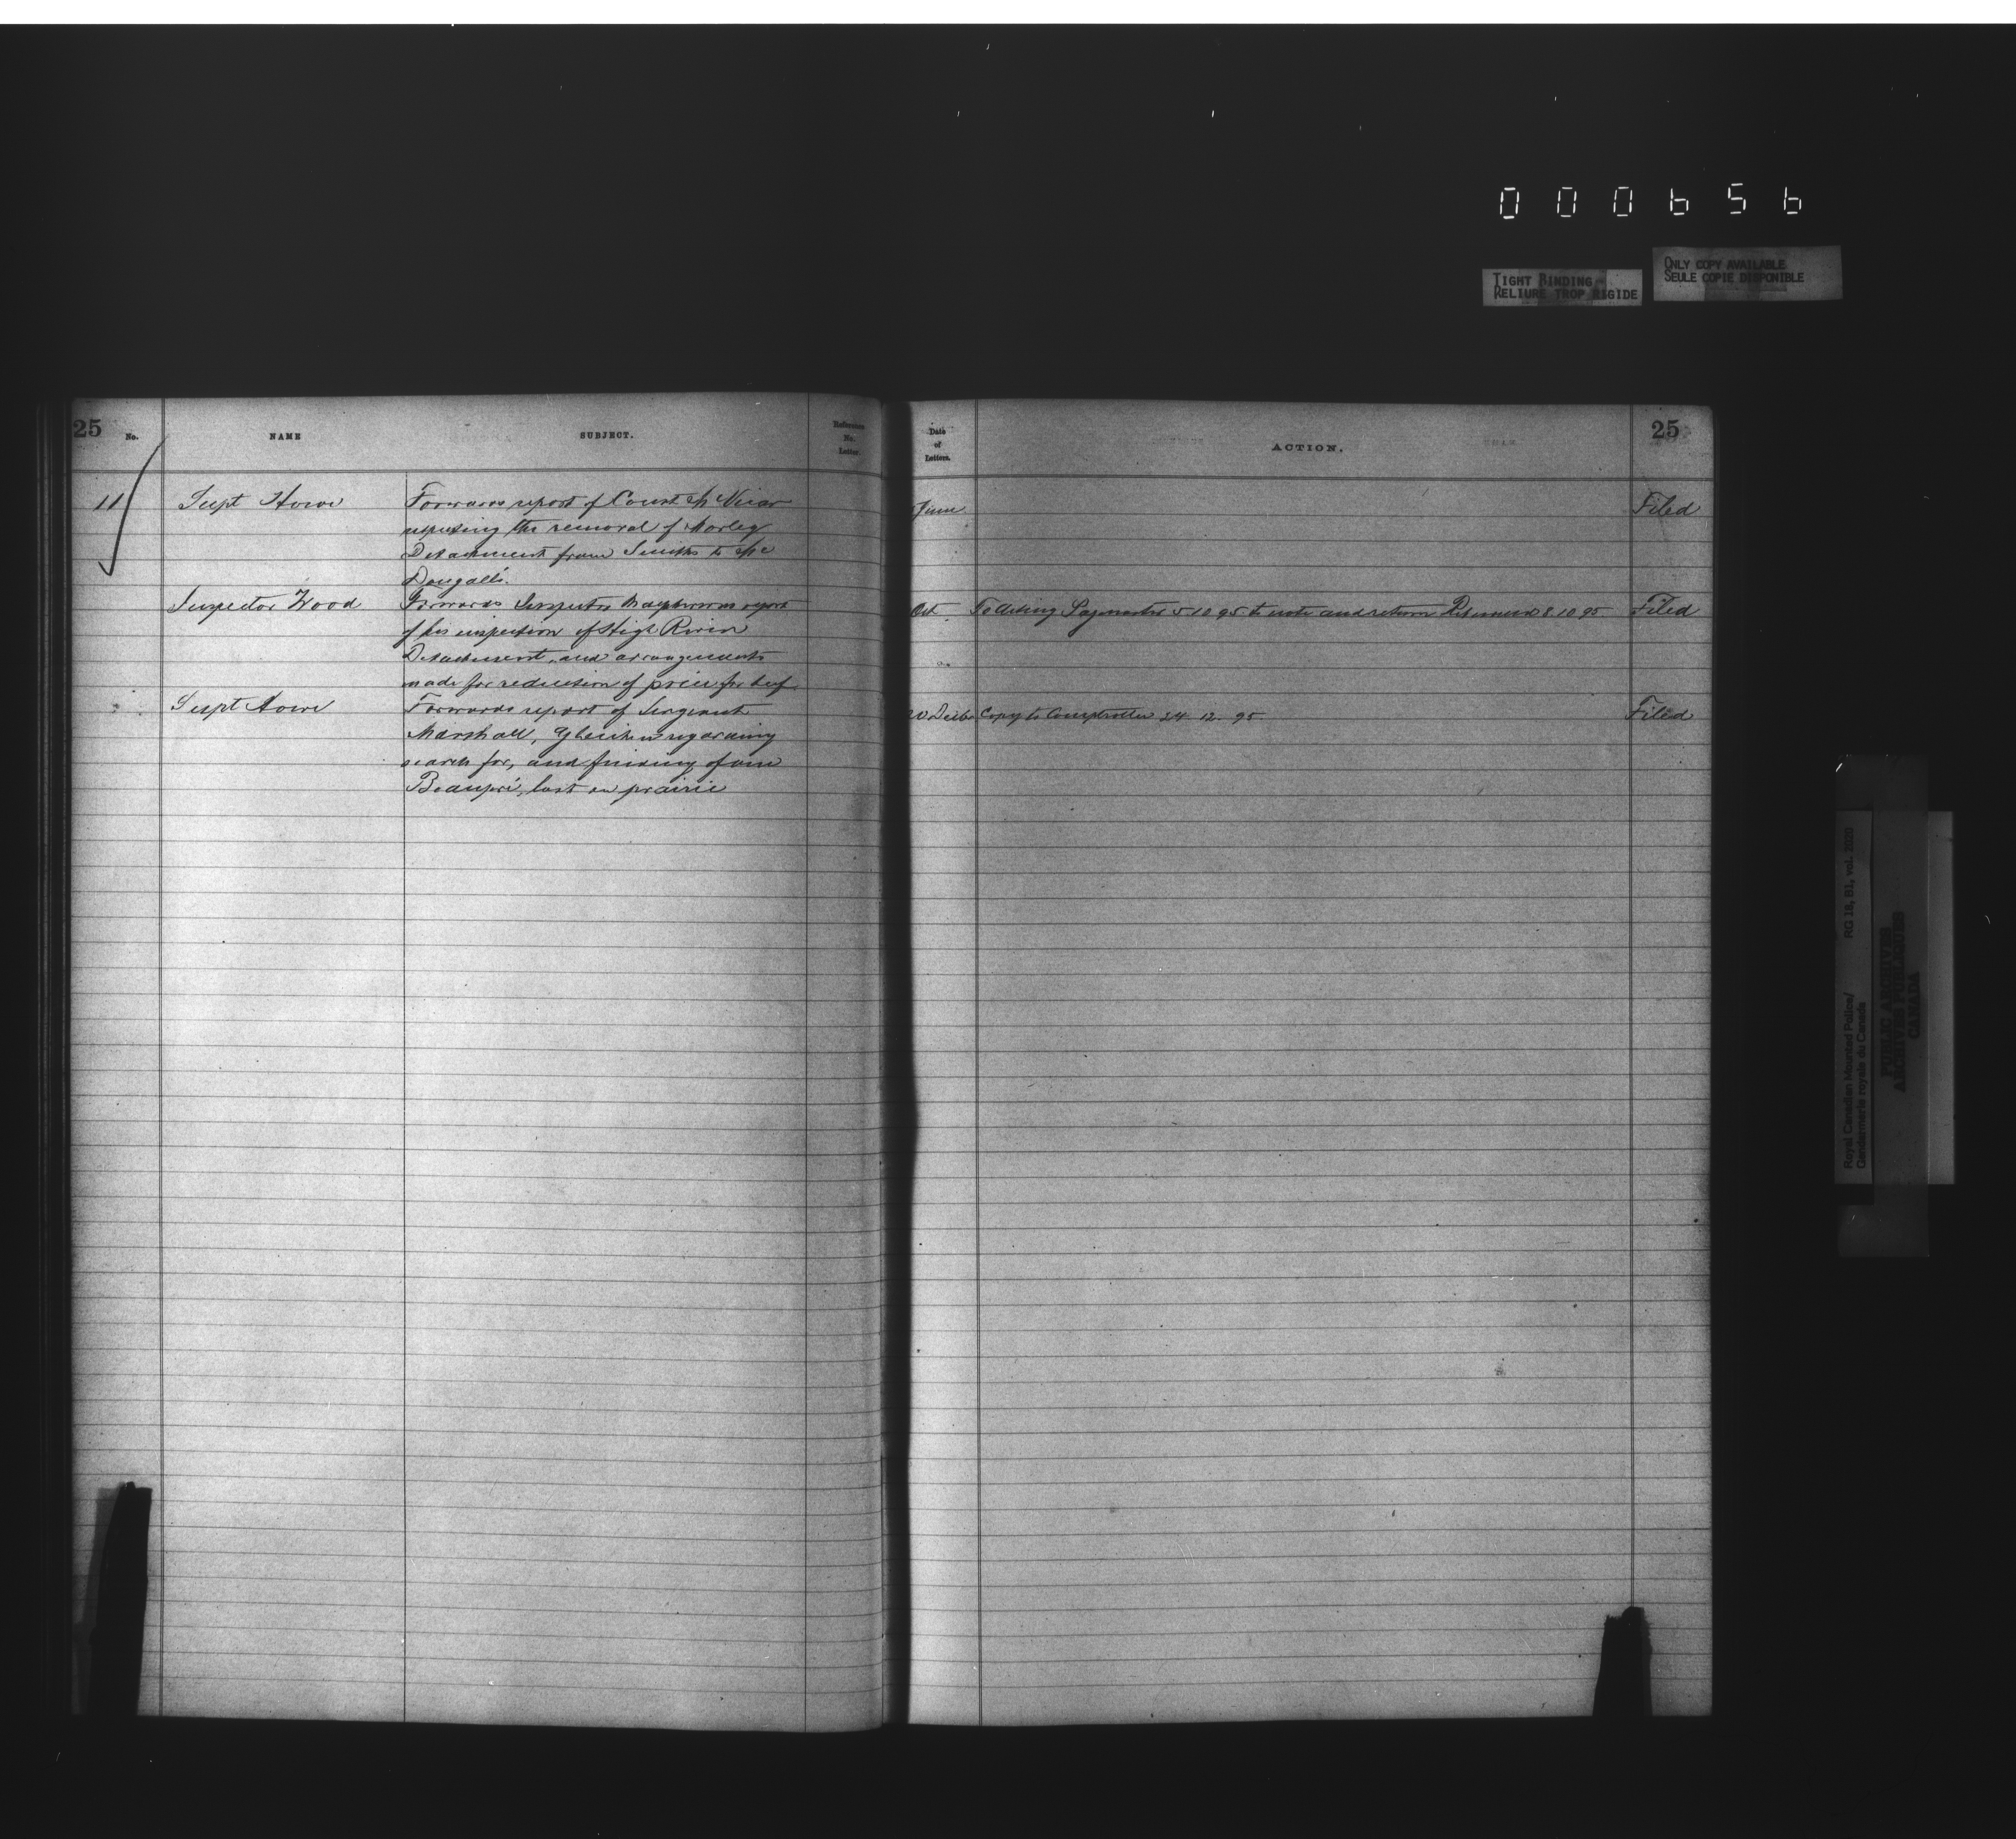 000656
TIGHT BINDING
RELIURE TROP RIGIDE
ONLY COPY AVAILABLE
SEULE COPIE DISPONIBLE
25
No.
NAME
SUBJECT.
Reference
No.
Letter.
11
Supt Howe
Forwards report of Const Mc Vicar
respecting the removal of Morley
Detachment from Smiths to Mc
Dougall's.
Inspector Wood
Forwards Inspector Macpherson report
of his inspection of High River
Detachment, and arrangements
made for reduction of price for beef
Supt Howe
Forwards report of Sergeant
Marshall, Gleichen regarding
search for, and finding of one
Beaupré, lost on prairie
Date
of
Letters.
ACTION.
25
June
Filed
Oct
To Acting Paymaster 5 10 95 to note and return Returned 8 10 95
Filed
Decbr
Copy to Comptroller 24. 12. 95
Filed
Royal Canadian Mounted Police/
Gendarmerie royale du Canada
RG 18, B1, vol. 2020
PUBLIC ARCHIVES
ARCHIVES PUBLIQUES
CANADA